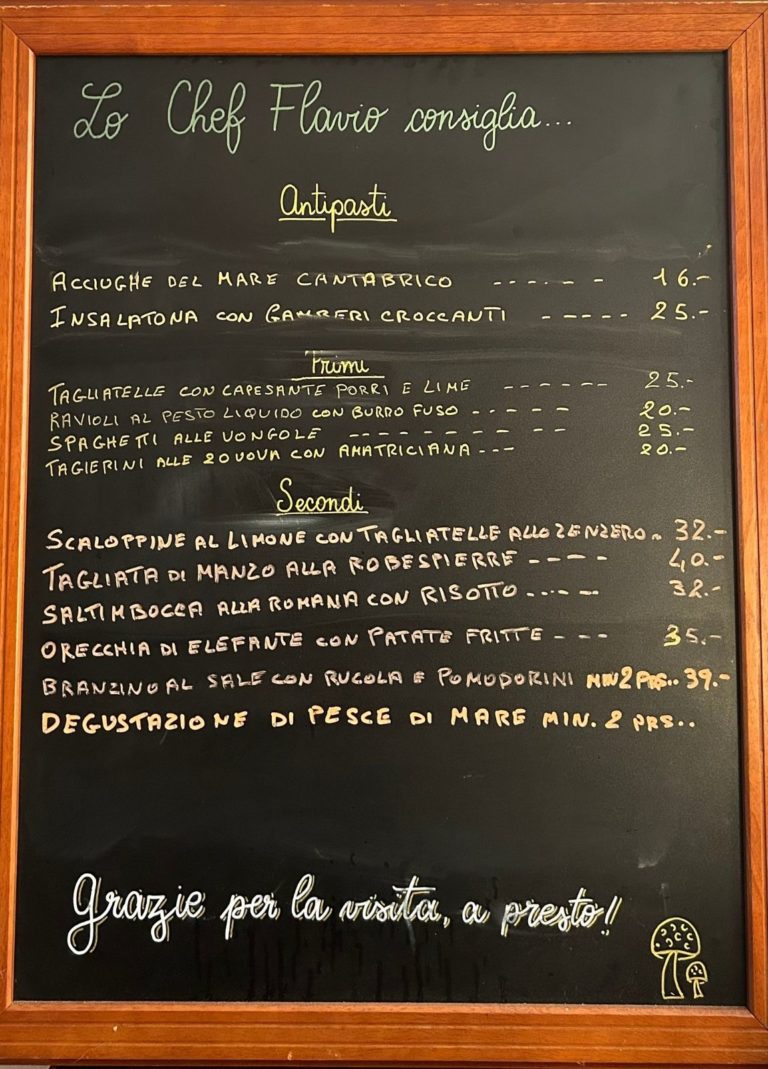 Lo Chef Flavio consiglia...
Antipasti
ACCIUGHE DEL MARE CANTABRICO ------ 16.-
INSALATONA CON GAMBERI CROCCANTI ----- 25.-
Primi
TAGLIATELLE CON CAPESANTE PORRI E LIME ------ 25.-
RAVIOLI AL PESTO LIQUIDO CON BURRO FUSO ----- 20.-
SPAGHETTI ALLE VONGOLE --------- 25.-
TAGIERINI ALLE 20 UOVA CON AMATRICIANA --- 20.-
Secondi
SCALOPPINE AL LIMONE CON TAGLIATELLE ALLO ZENZERO - 32.-
TAGLIATA DI MANZO ALLA ROBESPIERRE ---- 40.-
SALTIMBOCCA ALLA ROMANA CON RISOTTO ----- 32.-
ORECCHIA DI ELEFANTE CON PATATE FRITTE --- 35.-
BRANZINO AL SALE CON RUCOLA E POMODORINI MIN 2 PRS.. 39.-
DEGUSTAZIONE DI PESCE DI MARE MIN. 2 PRS..
Grazie per la visita, a presto!!